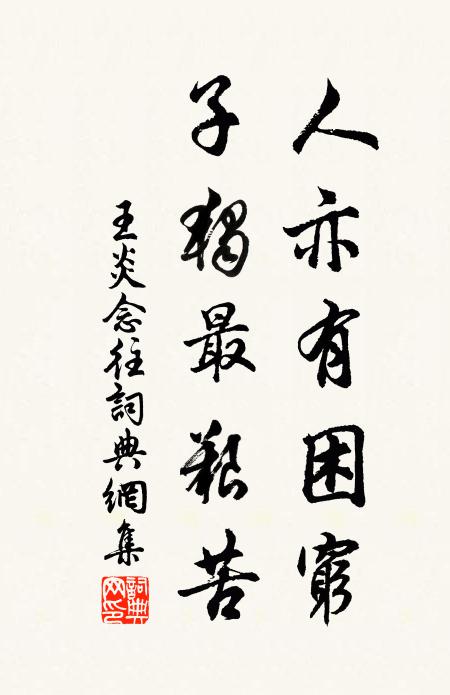 人亦有困窮
子獨最艱苦
王炎念往詞典網集
詞典網印